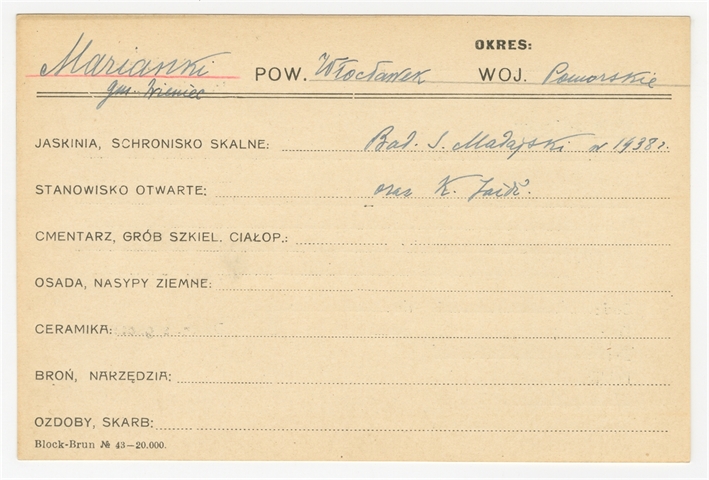 OKRES:
Marianki POW. Włocławek WOJ. Pomorskie
gm. Wieniec
JASKINIA, SCHRONISKO SKALNE: Bad. S. Madajski w 1938 r.
STANOWISKO OTWARTE: oraz K.
CMENTARZ, GRÓB SZKIEL. CIAŁOP.:
OSADA, NASYPY ZIEMNE:
CERAMIKA:
BROŃ, NARZĘDZIA:
OZDOBY, SKARB:
Block-Brun № 43—20.000.